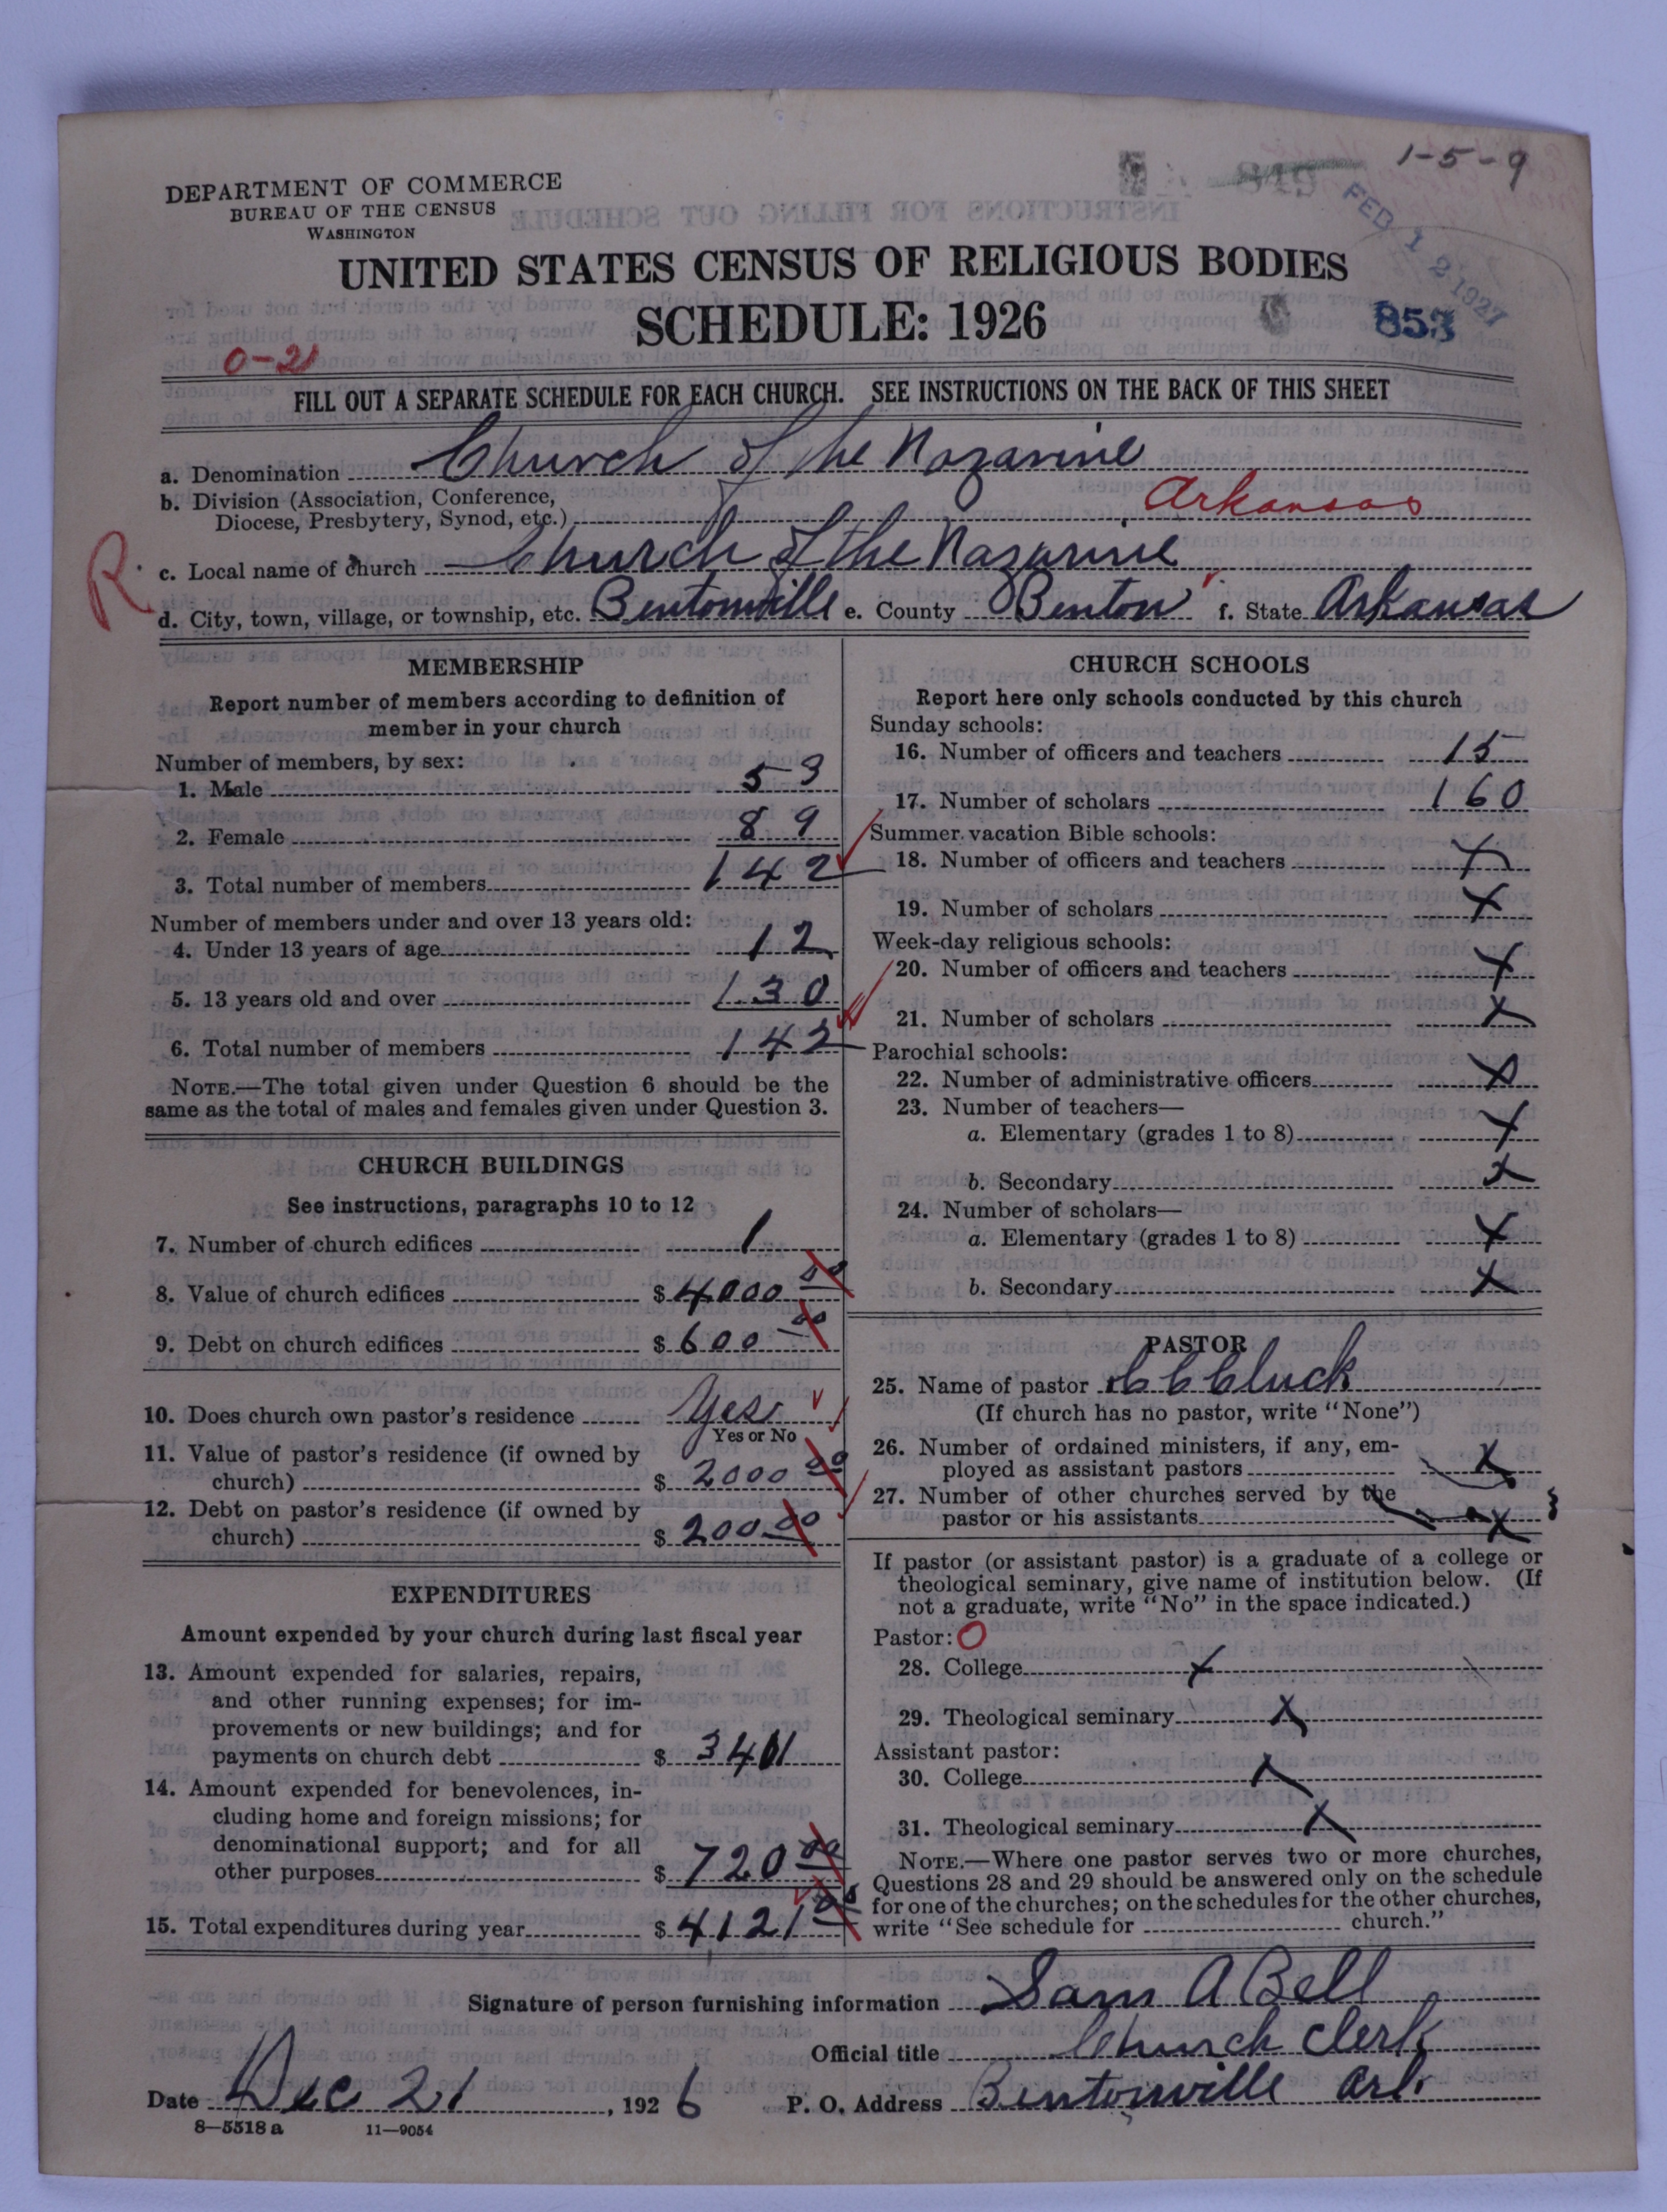 1-5-9
DEPARTMENT OF COMMERCE
BUREAU OF THE CENSUS
WASHINGTON
FEB 12 1927
UNITED STATES CENSUS OF RELIGIOUS BODIES
SCHEDULE: 1926
853
0-21
FILL OUT A SEPARATE SCHEDULE FOR EACH CHURCH. SEE INSTRUCTIONS ON THE BACK OF THIS SHEET
a. Denomination Church of the Nazarine
b. Division (Association, Conference,
Diocese, Presbytery, Synod, etc.) Arkansas
R.
c. Local name of church Church of the Nazarine
d. City, town, village, or township, etc. Bentonville e. County Benton f. State Arkansas
MEMBERSHIP
Report number of members according to definition of
member in your church
Number of members, by sex:
1. Male 53
2. Female 89
3. Total number of members 142
Number of members under and over 13 years old:
4. Under 13 years of age 12
5. 13 years old and over 130
6. Total number of members 142
NOTE.—The total given under Question 6 should be the
same as the total of males and females given under Question 3.
CHURCH BUILDINGS
See instructions, paragraphs 10 to 12
7. Number of church edifices 1
8. Value of church edifices $ 4000 00
9. Debt on church edifices $ 600 00
10. Does church own pastor's residence Yes
Yes or No
11. Value of pastor's residence (if owned by
church) $ 2000 00
12. Debt on pastor's residence (if owned by
church) $ 200 00
EXPENDITURES
Amount expended by your church during last fiscal year
13. Amount expended for salaries, repairs,
and other running expenses; for im-
provements or new buildings; and for
payments on church debt $ 3401
14. Amount expended for benevolences, in-
cluding home and foreign missions; for
denominational support; and for all
other purposes $ 720 00
15. Total expenditures during year $ 4121 00
CHURCH SCHOOLS
Report here only schools conducted by this church
Sunday schools:
16. Number of officers and teachers 15
17. Number of scholars 160
Summer vacation Bible schools:
18. Number of officers and teachers X
19. Number of scholars X
Week-day religious schools:
20. Number of officers and teachers X
21. Number of scholars X
Parochial schools:
22. Number of administrative officers X
23. Number of teachers—
a. Elementary (grades 1 to 8) X
b. Secondary X
24. Number of scholars—
a. Elementary (grades 1 to 8) X
b. Secondary X
PASTOR
25. Name of pastor C C Cluck
(If church has no pastor, write "None")
26. Number of ordained ministers, if any, em-
ployed as assistant pastors X
27. Number of other churches served by the
pastor or his assistants X
If pastor (or assistant pastor) is a graduate of a college or
theological seminary, give name of institution below. (If
not a graduate, write "No" in the space indicated.)
Pastor: O
28. College X
29. Theological seminary X
Assistant pastor:
30. College X
31. Theological seminary X
NOTE.—Where one pastor serves two or more churches,
Questions 28 and 29 should be answered only on the schedule
for one of the churches; on the schedules for the other churches,
write "See schedule for church."
Signature of person furnishing information Sam A Bell
Official title Church Clerk
Date Dec 21, 1926 P. O. Address Bentonville Ark.
8—5518 a 11—9054